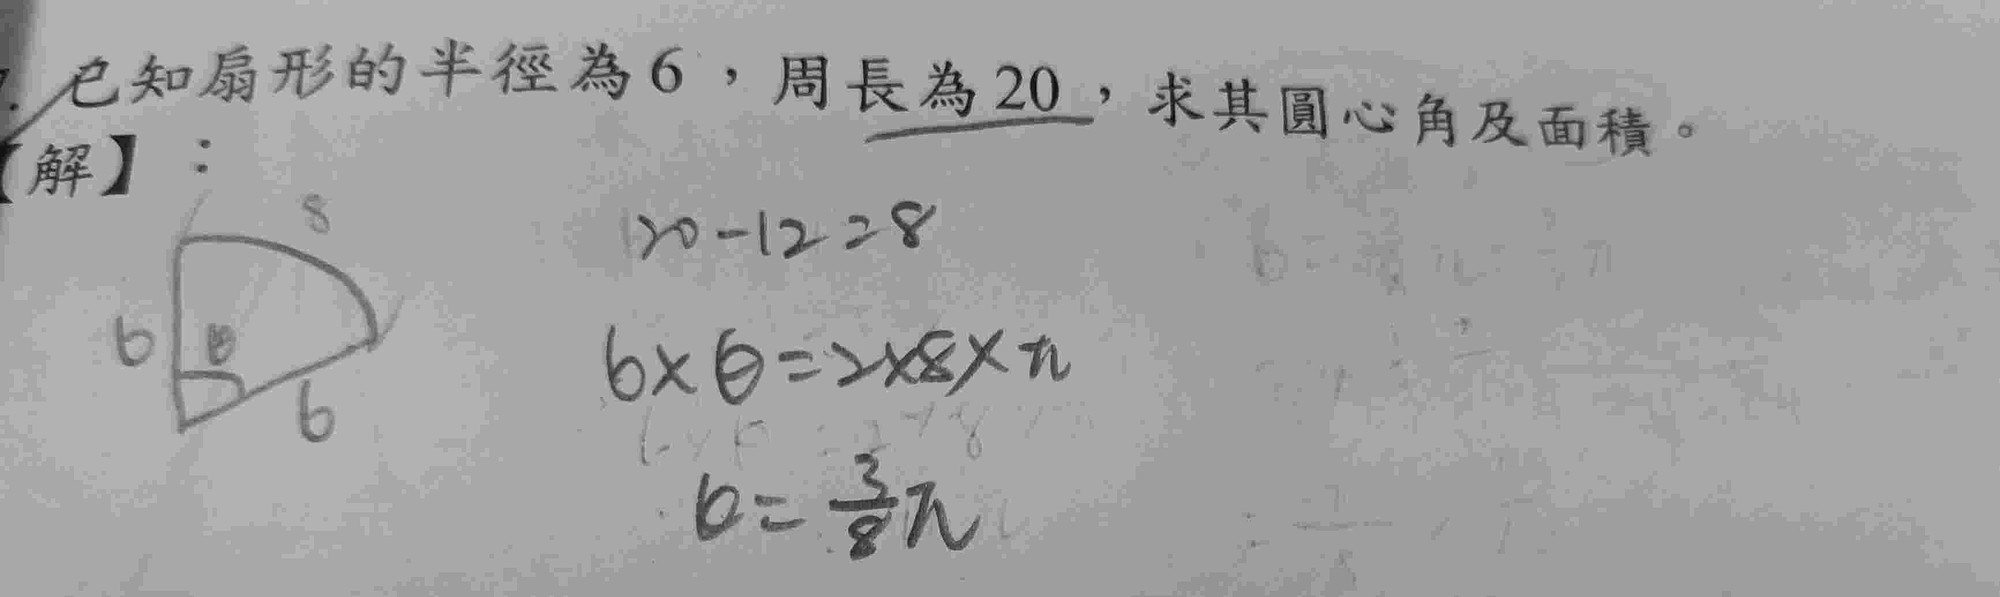 已知扇形的半徑為6，周長為20，求其圓心角及面積。
【解】：
8
6
θ
6
20-12=8
6×θ=2×8×π
θ=3/8π